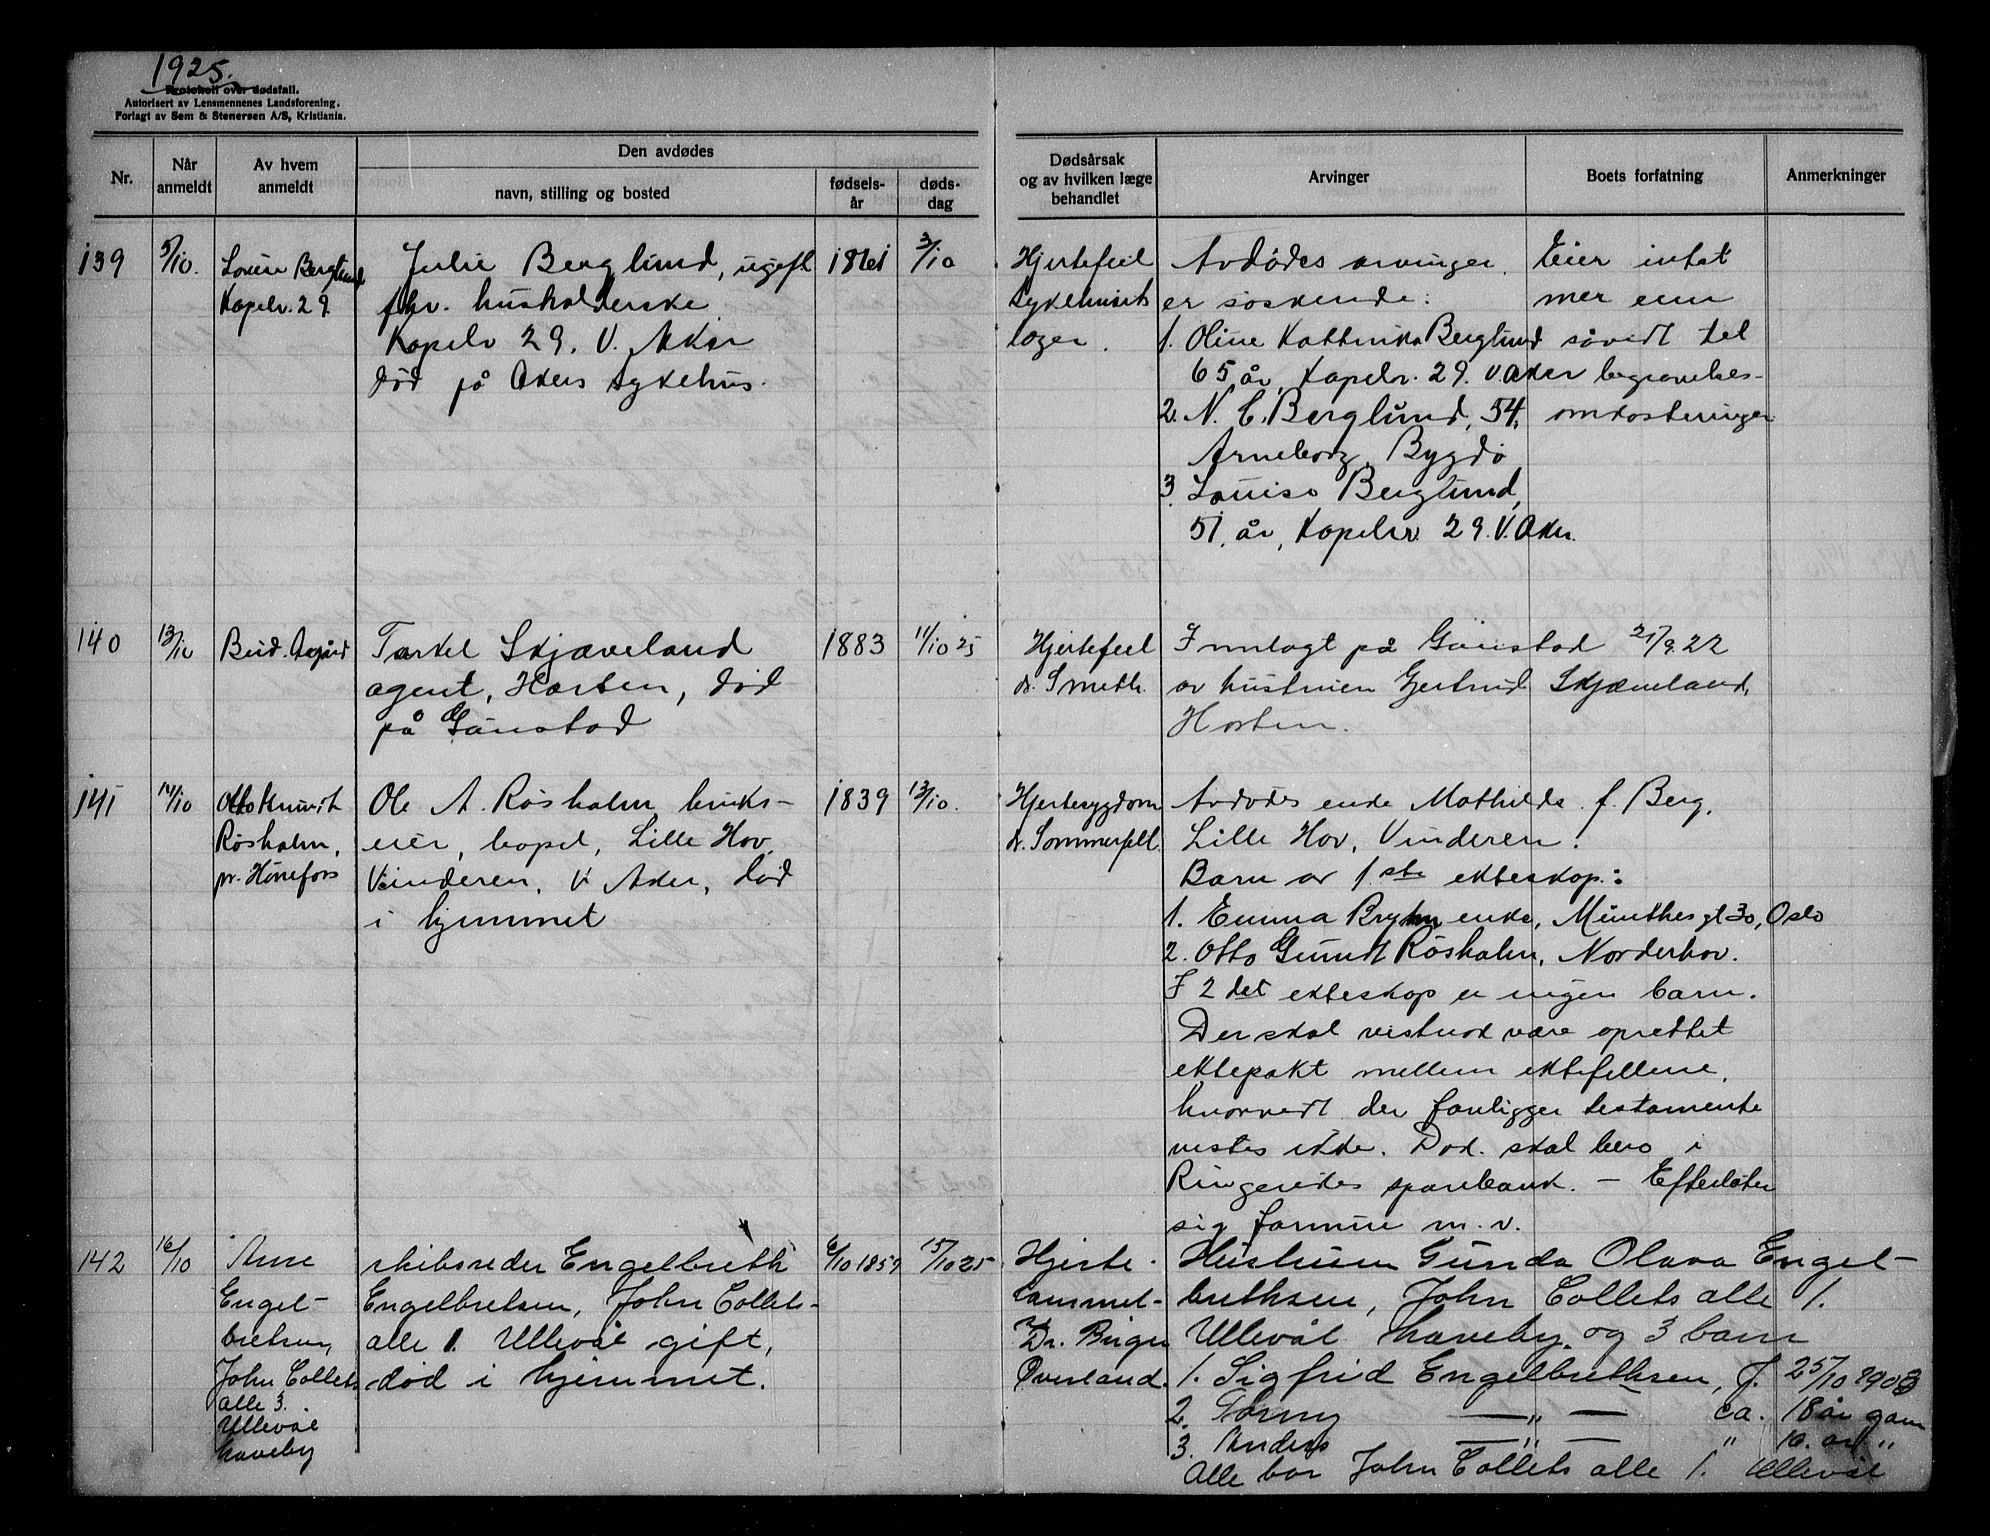 1925.
Protokoll over dødsfall.
Autorisert av Lensmennenes Landsforening.
Forlagt av Sem & Stenersen A/S, Kristiania.
Nr.
Når anmeldt
Av hvem anmeldt
Den avdødes
navn, stilling og bosted
fødsels-år
døds-dag
Dødsårsak og av hvilken læge behandlet
Arvinger
Boets forfatning
Anmerkninger
139
5/10.
Louise Berglund
Kapelv. 29.
Julie Berglund, ugift
fhv. husholderske
Kapelv 29. V. Aker
død på Akers sykehus.
1861
3/10
Hjertefeil
sykehusets
læger.
Avdødes arvinger
er søskende:
1. Oline Kathrika Berglund
65 år, Kapelv. 29. V. Aker
2. N. C. Berglund, 54,
Arneborg, Bygdø
3. Louise Berglund,
51. år, Kapelv. 29. V. Aker.
Eier intet
mer enn
såvidt til
begravelses-
omkostninger
140
13/10
Torkel Skjæveland
agent, Horten, død
på Gaustad
1883
11/10 25
Hjertefeil
dr. Smeth.
Innlagt på Gaustad 21/9.22
av hustruen Gjertrud Skjæveland,
Horten.
141
14/10
Otto
Røsholm,
pr. Hønefoss
Ole A. Røsholm bruks-
eier, bopel, Lille Hov,
Vinderen, V. Aker, død
i hjemmet
1839
13/10.
Hjertesygdom
dr. Sommerfelt.
Avdødes enke Mathilde f. Berg,
Lille Hov, Vinderen.
Barn av 1.ste ekteskap:
1. Emma Bryhn enke, Münthes gt 30, Oslo
2. Otto Gundt Røsholm, Norderhov.
I 2det ekteskap er ingen barn.
Der skal vistnok være oprettet
ektepakt mellem ektefellene,
hvorvidt der foreligger testamente
vistes ikke. Dok. skal bero i
Ringerikes sparebank. – Efterlater
sig formue m.v.
142
16/10
Arne
Engel-
bretsen,
John Collets
alle 3.
Ullevål
haveby
skibsreder Engelbreth
Engelbretsen, John Collets-
alle 1. Ullevål gift,
død i hjemmet.
6/10 1859
15/10 25
Hjerte-
lammel-
se
Dr. Birger
Øverland.
Hustruen Gunda Olava Engel-
brethsen, John Collets alle 1.
Ullevål haveby og 3 barn
1. Sigfrid Engelbrethsen, f. 25/10 1903
2. Torny — „ — ca. 18 år gam
3. Anders — „ — „ 16. år „
Alle bor John Collets alle 1. Ullevål